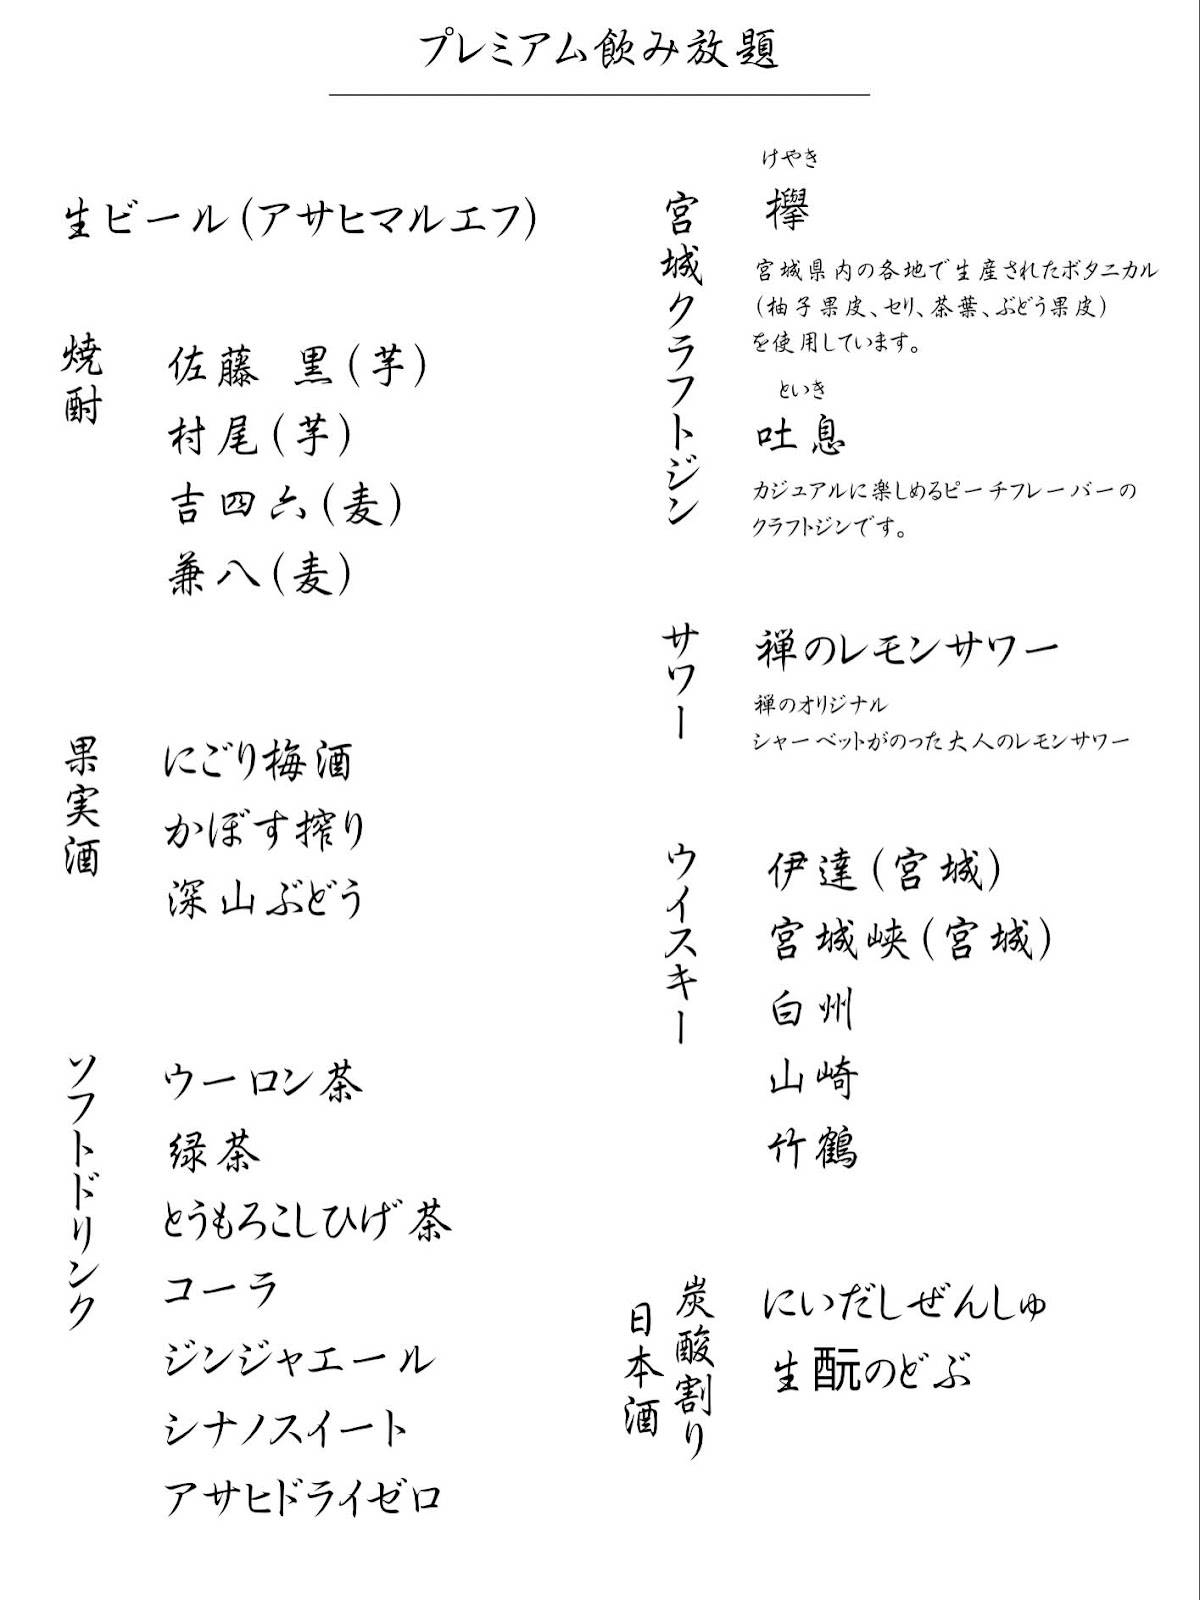 プレミアム飲み放題
生ビール(アサヒマルエフ)
焼酎
佐藤 黒(芋)
村尾(芋)
吉四六(麦)
兼八(麦)
果実酒
にごり梅酒
かぼす搾り
深山ぶどう
ソフトドリンク
ウーロン茶
緑茶
とうもろこしひげ茶
コーラ
ジンジャエール
シナノスイート
アサヒドライゼロ
宮城クラフトジン
けやき
欅
宮城県内の各地で生産されたボタニカル
(柚子果皮、セリ、茶葉、ぶどう果皮)
を使用しています。
といき
吐息
カジュアルに楽しめるピーチフレーバーの
クラフトジンです。
サワー
禅のレモンサワー
禅のオリジナル
シャーベットがのった大人のレモンサワー
ウイスキー
伊達(宮城)
宮城峡(宮城)
白州
山崎
竹鶴
炭酸割り
日本酒
にいだしぜんしゅ
生酛のどぶ